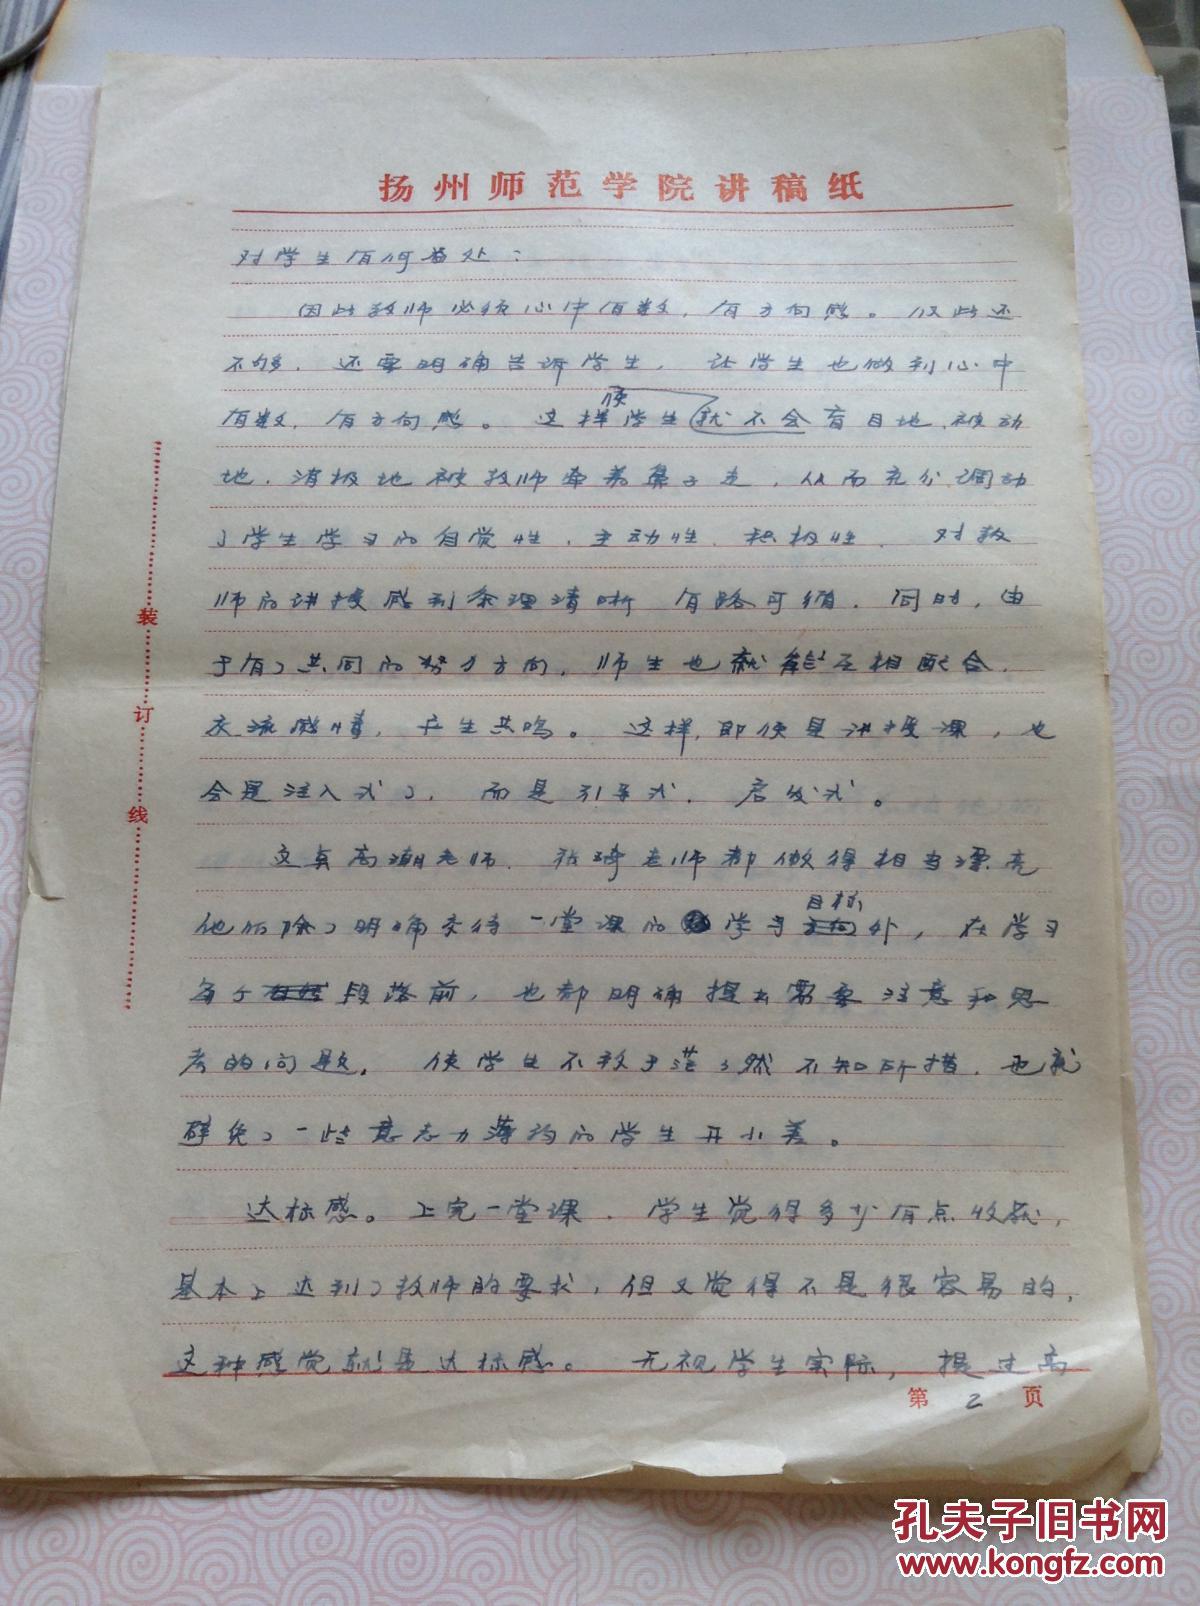 扬州师范学院讲稿纸
对学生有何益处：
因此教师必须心中有数，有方向感。仅此还
不够，还要明确告诉学生，让学生也做到心中
使
有数，有方向感。这样学生就不会盲目地、被动
地、消极地被教师牵着鼻子走，从而充分调动
了学生学习的自觉性、主动性、积极性，对教
师的讲授感到条理清晰 有路可循。同时，由
于有了共同的努力方向，师生也就能互相配合，
交流感情，产生共鸣。这样，即使是讲授课，也
会是注入式了，而是引导式、启发式。
高潮老师、张琦老师都做得相当漂亮
目标
他们除了明确交待一堂课的学习方向外，在学习
每个段落前，也都明确提出需要注意和思
考的问题，使学生不致于茫茫然不知所措，也就
避免了一些意志力薄弱的学生开小差。
达标感。上完一堂课，学生觉得多少有点收获，
基本上达到了教师的要求，但又觉得不是很容易的，
这种感觉就是达标感。无视学生实际，提过高
第 2 页
装
订
线
孔夫子旧书网
www.kongfz.com